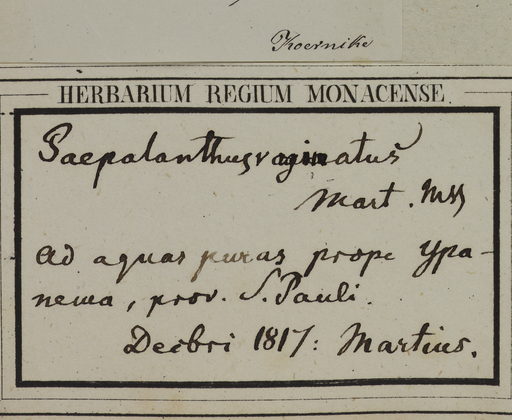 Koernike
HERBARIUM REGIUM MONACENSE.
Paepalanthus vaginatus
Mart. Mss
Ad aquas puras prope Ypa-
nema, prov. S. Pauli.
Decbri 1817: Martius.